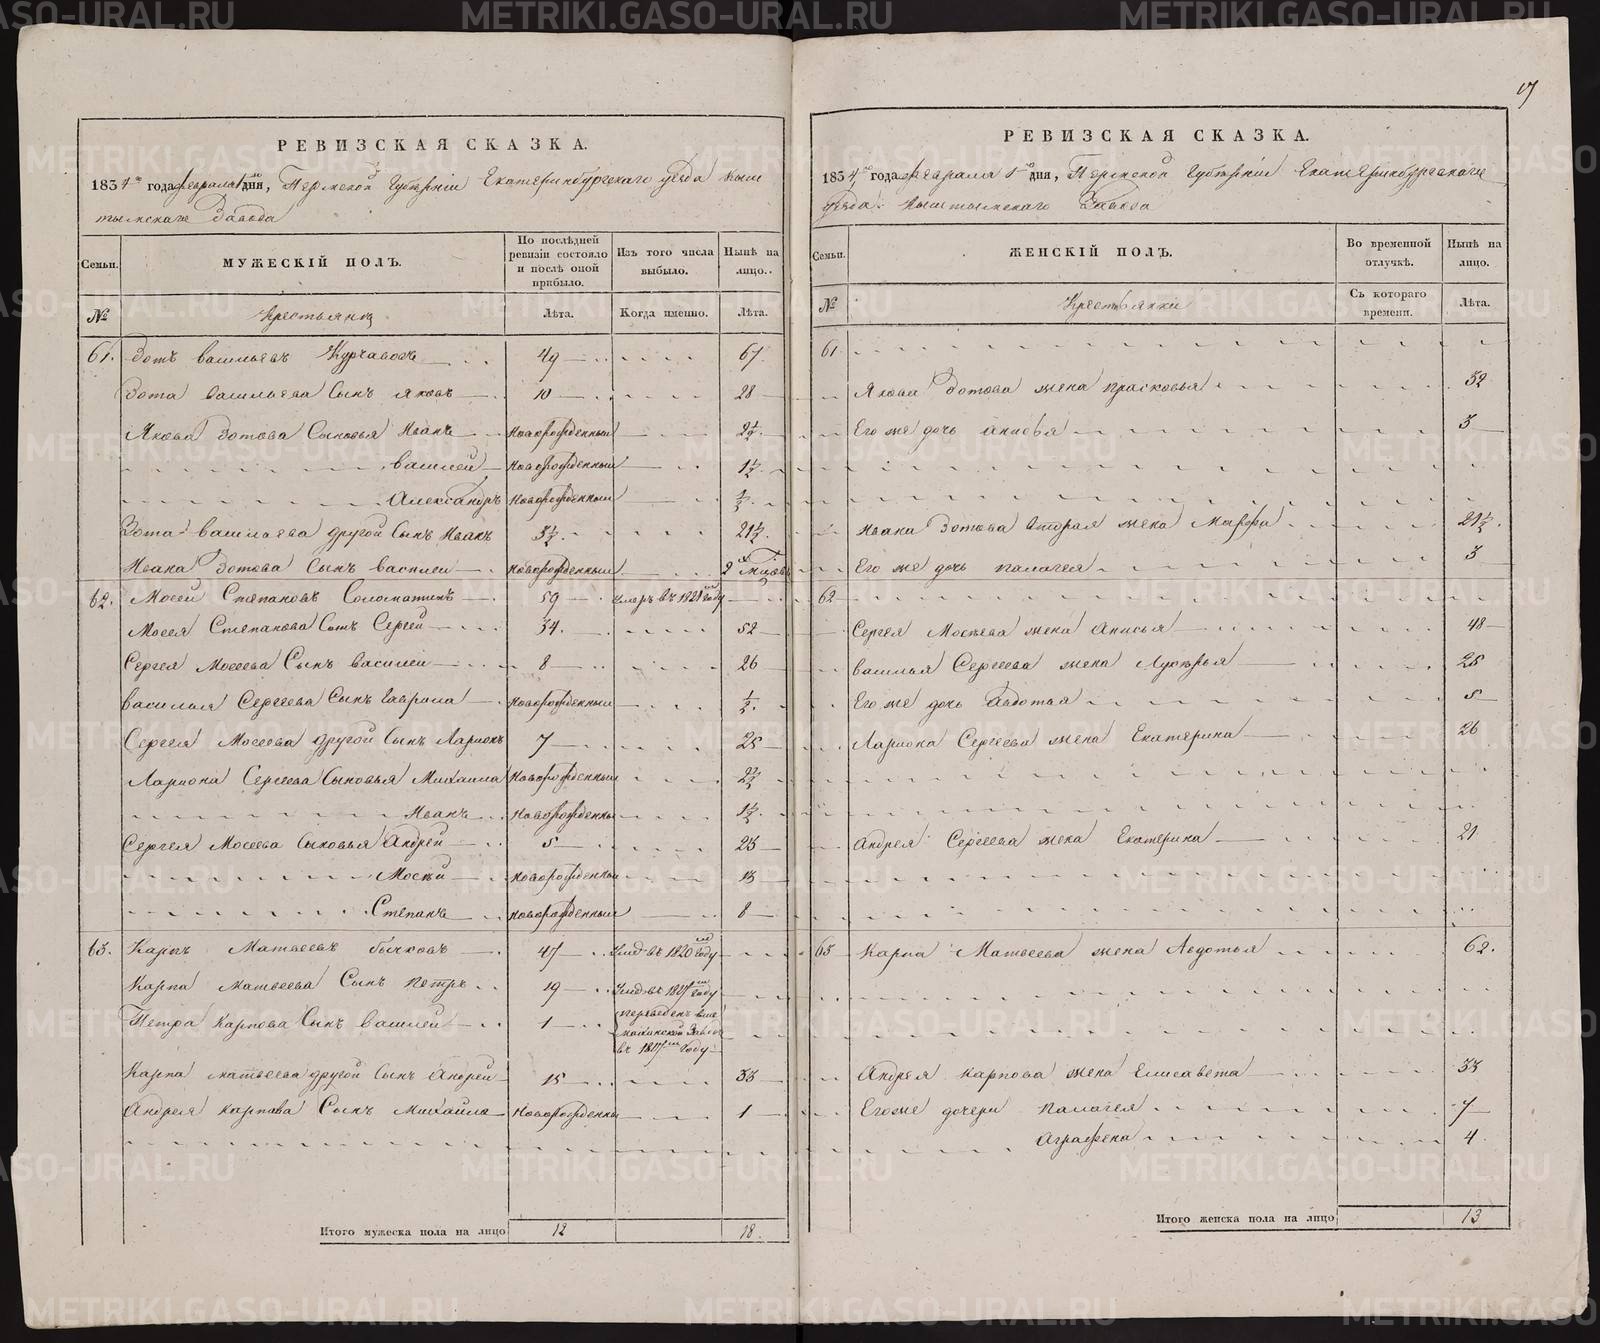 РЕВИЗСКАЯ СКАЗКА.
1834 года февраля 1 дня, Пермской Губернии Екатеринбургскаго уезда Кыш
тымскаго Завода
Семьи. МУЖЕСКІЙ ПОЛЪ. По послѣдней ревизіи состояло и послѣ оной прибыло. Изъ того числа выбыло. Нынѣ на лицо.
№ Крестьяне Лѣта. Когда именно. Лѣта.
61. Зотъ Васильевъ 49 67.
Зота Васильева Сынъ Яковъ 10 28
Якова Зотова Сыновья Иванъ Новорожденный 2½.
Василей Новорожденный 1½.
Александръ Новорожденный ½.
Зота Васильева другой Сынъ Иванъ 3½. 21½.
Ивана Зотова Сынъ Василей Новорожденный 2
62. Мосей Степановъ Соломатинъ 59 умеръ въ 1821 году
Мосея Степанова Сынъ Сергей 34. 52
Сергея Мосеева Сынъ Василей 8 26
Василья Сергеева Сынъ Гаврила Новорожденный ½.
Сергея Мосеева другой Сынъ Ларионъ 7 25
Лариона Сергеева Сыновья Михаила Новорожденный
Иванъ Новорожденны 1½.
Сергея Мосеева Сыновья Андрей 5 23
Мосей Новорожденны 13
Степанъ Новорожденный 8
63. Карпъ Матвеевъ Бычковъ 47 въ 1820 году
Карпа Матвеева Сынъ Петръ 19 году
Петра Карпова Сынъ Василей 1 переведенъ Завод въ году
Карпа Матвеева другой Сынъ Андрей 15 33
Андрея Карпова Сынъ Михайла Новорожденны 1
Итого мужеска пола на лицо 12 18.
РЕВИЗСКАЯ СКАЗКА.
1834 года февраля 1 дня, Пермской Губернии Екатеринбургскаго
уезда Кыштымскаго Завода
Семьи. ЖЕНСКІЙ ПОЛЪ. Во временной отлучкѣ. Нынѣ на лицо.
№ Крестьянки Съ котораго времени. Лѣта.
61
Якова Зотова жена Прасковья 32
Его же дочь 3
Ивана Зотова вторая жена Марфа 21½.
Его же дочь Палагея 3
62
Сергея Мосеева жена Анисья 48
Василья Сергеева жена Лукерья 25
Его же дочь Авдотья 5
Лариона Сергеева жена Екатерина 26
Андрея Сергеева жена Екатерина 21
63 Карпа Матвеева жена Авдотья 62.
Андрея Карпова жена Елисавета 33
Его же дочери Палагея 7
Аграфена 4.
Итого женска пола на лицо 13
METRIKI.GASO-URAL.RU